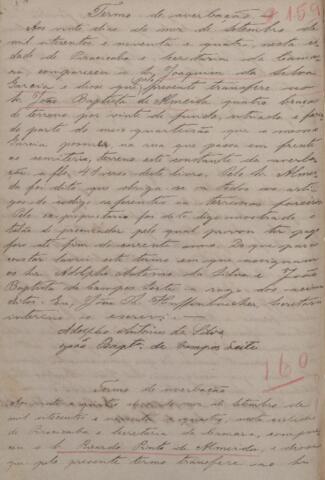 Termo de averbação 159
Aos vinte dias do mez de Setembro de
mil oitocentos e noventa e quatro, nesta ci-
dade de Piracicaba e Secretaria da Cama-
ra, compareceu o Sr. Joaquim da Silva
Garcia e disse que pelo presente transfere ao
Sr. João Baptista de Almeida quatro braças
de terreno por vinte de fundo, situado e faz
do parte do meio quarteirão que o mesmo
Garcia possue na rua que passa em frente
ao cemiterio, terreno este constante da averba-
ção a fls. 43 verso deste livro. Pelo Sr. Almei-
da foi dito que obriga-se a todos os arti-
gos do codigo referente a terrenos foreiros.
Pelo ex-proprietario foi dito digo mostrado o
talão do procurador pelo qual provou ter pago
foro até fim do corrente anno. Do que para
constar lavrei este termo em que assignam
os Srs. Adolpho Antonio da Silva e João
Baptista de Campos Leite a rogo dos
Eu, secretario
interino o escrevi.
Adolpho Antonio da Silva
João Bapta. de Campos Leite
160
Termo de averbação
Aos vinte e quatro dias do mez de Setembro de
mil oitocentos e noventa e quatro, nesta cidade
de Piracicaba e Secretaria da Camara, compare-
ceu o Sr. Ricardo Pinto de Almeida, e disse
que pelo presente termo transfere ao